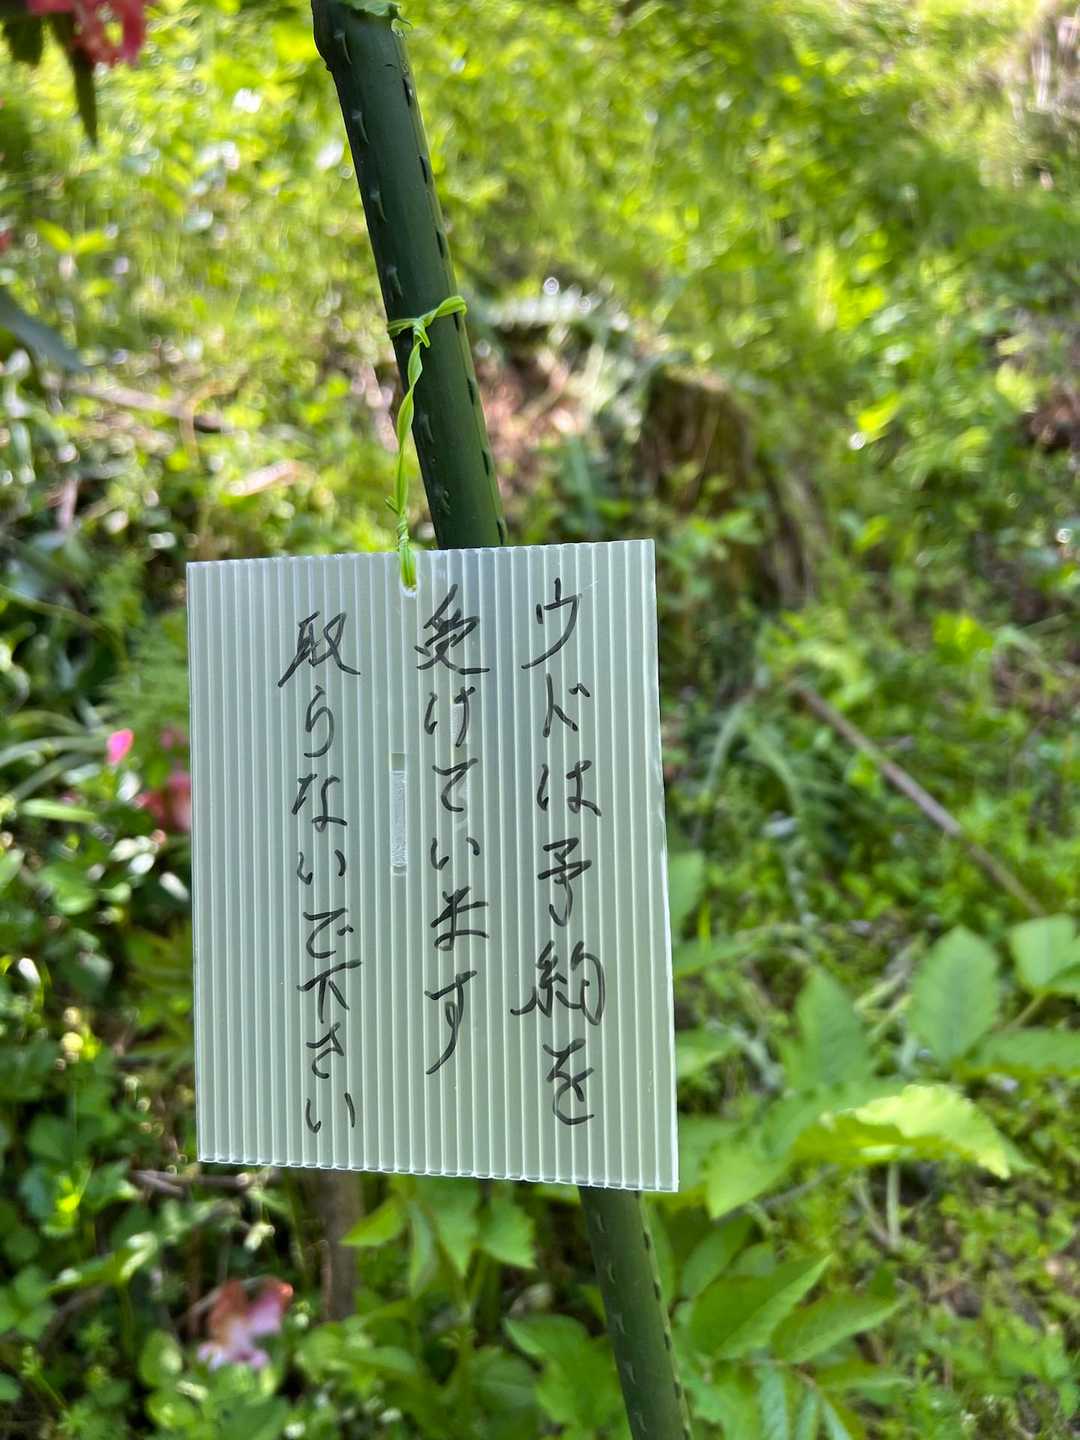 ウドは予約を
受けています
取らないで下さい